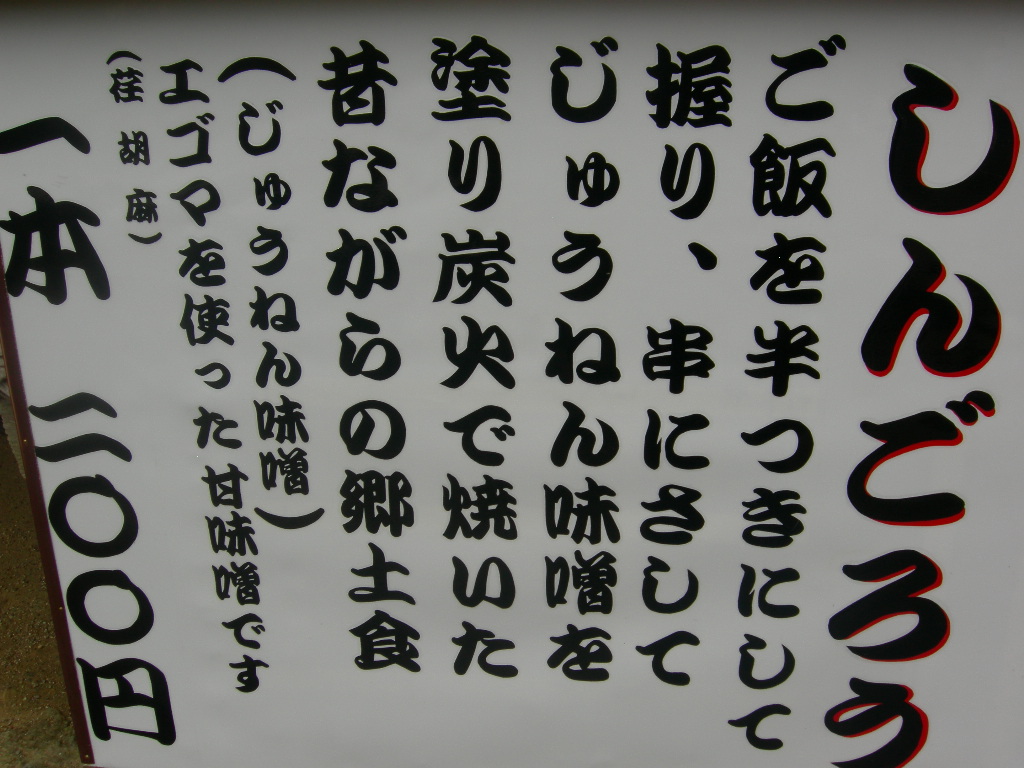 しんごろう
ご飯を半つきにして
握り、串にさして
じゅうねん味噌を
塗り炭火で焼いた
昔ながらの郷土食
(じゅうねん味噌)
エゴマを使った甘味噌です
(荏胡麻)
一本 二〇〇円